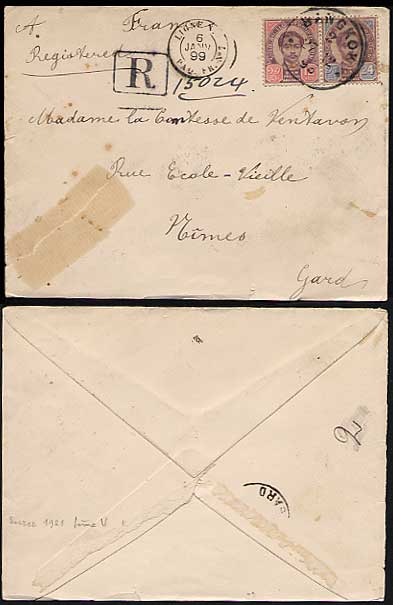 A France
Registered
R
15024
LIGNE N
6
JANV
99
PAQ. FR. Nº1
BANGKOK
Madame la Comtesse de Ventavon
Rue Ecole-Vieille
Nîmes
Gard
GARD